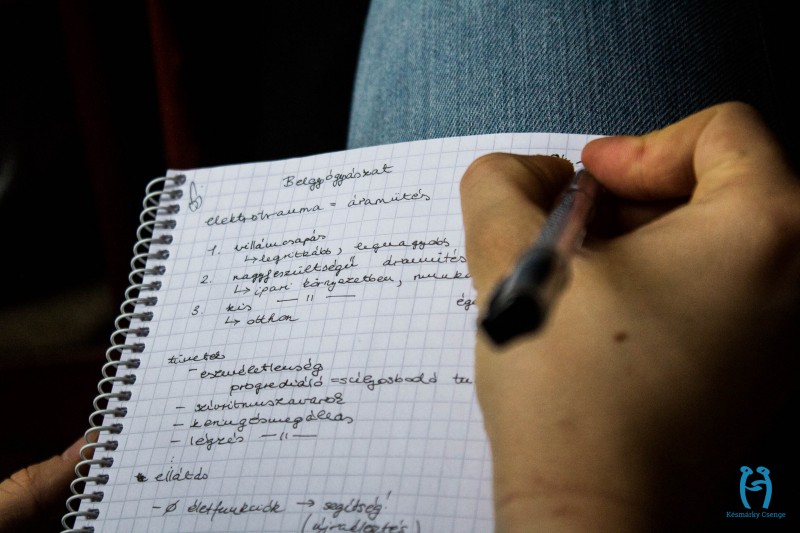 Belgyógyászat
elektrotrauma = áramütés
1. villámcsapás
↳ legritkább, legnagyobb
2. nagyfeszültségű áramütés
↳ ipari környezetben, munka
3. kis —"— ég
↳ otthon
tünetek
- eszméletlenség
progrediáló = súlyosbodó tu
- szívritmuszavarok
- keringésmegállás
- légzés —"—
ellátás
- Ø életfunkciók → segítség!
(újraélesztés)
Késmárky Csenge